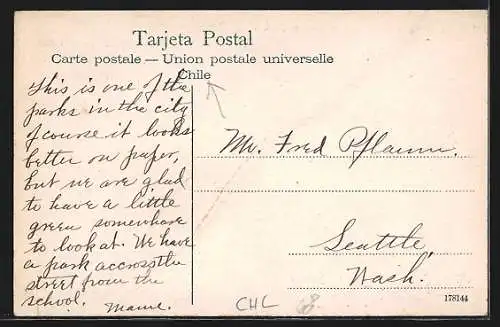 Tarjeta Postal
Carte postale — Union postale universelle
Chile
This is one of the
parks in the city
of course it looks
better on paper,
but we are glad
to have a little
green somewhere
to look at. We have
a park accross the
street from the
school.
Mame.
Mr. Fred Pflaum.
Seattle,
Wash.
178144
CHL
68